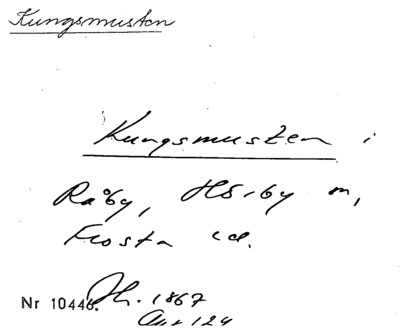 Kungsmusten
Kungsmusten i
Råby, Hörby m,
Frosta hd.
Nr 10446. Jh. 1867
124